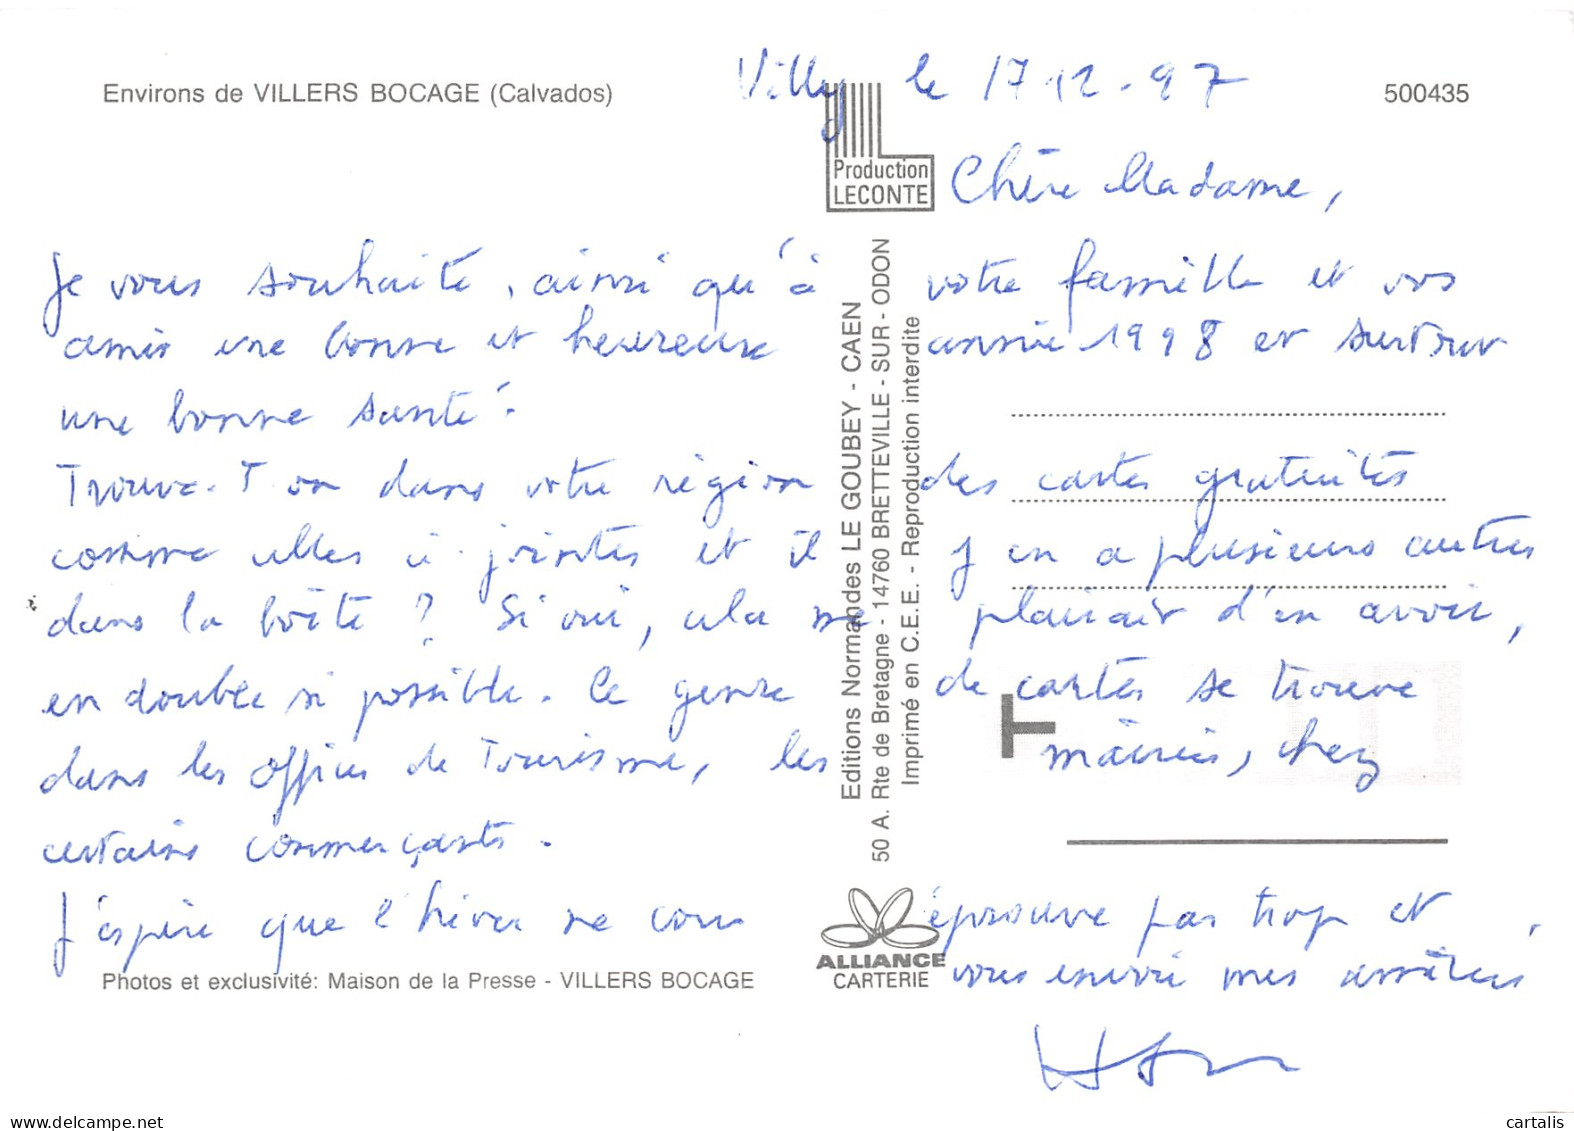 Environs de VILLERS BOCAGE (Calvados)
500435
Villy le 17 12.97
Production
LECONTE
Chère Madame,
Je vous souhaite, ainsi qu'à votre famille et vos
amis une bonne et heureuse année 1998 et surtout
une bonne santé.
Trouve-T on dans votre région des cartes gratuites
comme celles ci-jointes et il y en a plusieurs autres
dans la boîte ? Si oui, cela me plairait d'en avoir,
en double si possible. Ce genre de cartes se trouve
dans les offices de Tourisme, les mairies, chez
certains commerçants.
J'espère que l'hiver ne vous éprouve pas trop et
vous envoie mes
Editions Normandes LE GOUBEY - CAEN
50 A. Rte de Bretagne - 14760 BRETTEVILLE - SUR - ODON
Imprimé en C.E.E. - Reproduction interdite
ALLIANCE
CARTERIE
Photos et exclusivité: Maison de la Presse - VILLERS BOCAGE
cartalis